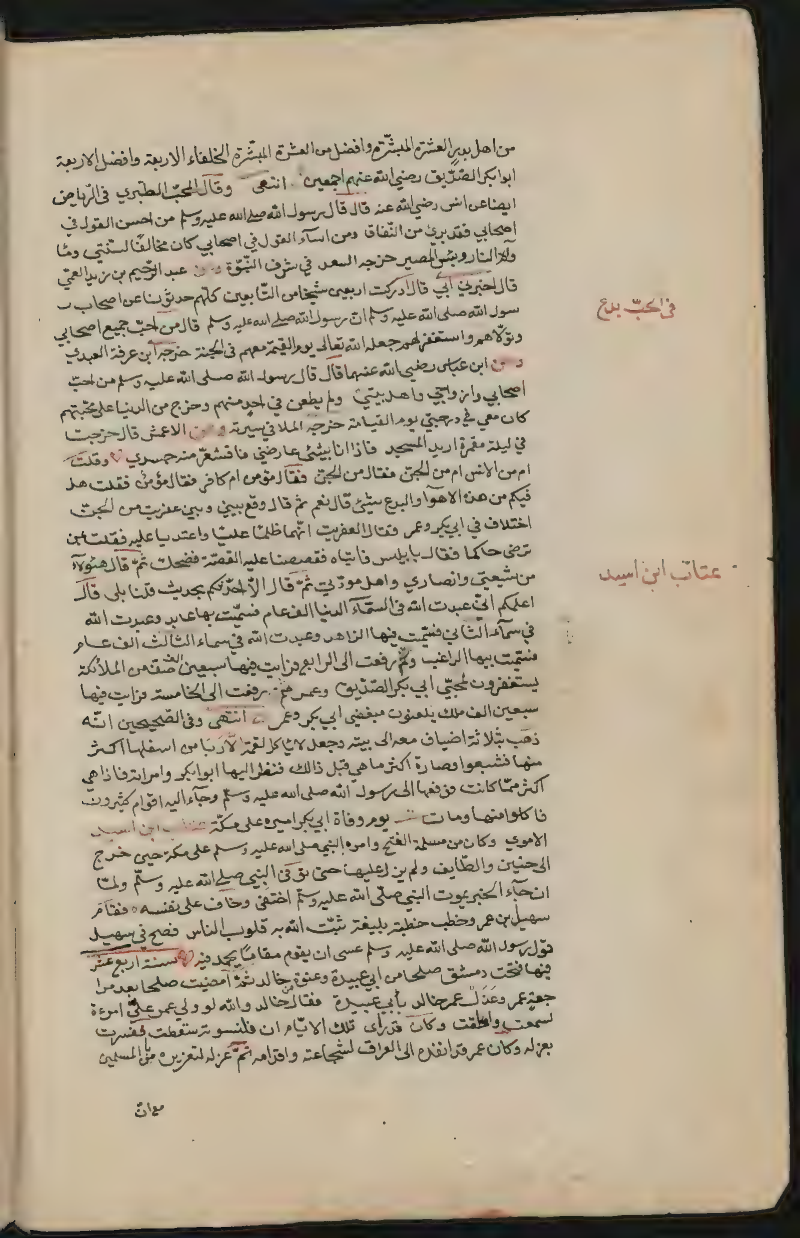 من اهل بدر العشرة المبشرة وافضل من العشرة المبشرة الخلفاء الاربعة وافضل الاربعة
ابوا بكر الصديق رضي الله عنهم اجمعين انتهى وقال المحب الطبري في الرياض
ايضا عن انس رضي الله عنه قال قال رسول الله صلى الله عليه وسلم من احسن القول في
اصحابي فقد بري من النفاق ومن اسآء القول في اصحابي كان مخالفا لسنتي وما
واه النار وبئس المصير خرجه السعد في شرف النبوة وعن عبد الرحيم بن زيد العمي
قال اخبرني ابي قال ادركت اربعين شيخا من التابعين كلهم حدثونا عن اصحاب ر
سول الله صلى الله عليه وسلم ان رسول الله صلى الله عليه وسلم قال من احب جميع اصحابي
وتولاهم واستغفر لهم جعله الله تعالى يوم القيمة معهم في الجنة خرجه ابن عرفة العبدي
وعن ابن عباس رضي الله عنهما قال قال رسول الله صلى الله عليه وسلم من احب
اصحابي وازواجي واهل بيتي ولم يطعن في احد منهم وخرج من الدنيا على محبتهم
كان معي في درجتي يوم القيامة خرجه الملا في سيرته وعن الاعمش قال خرجت
في ليلة مقمرة اريد المسجد فاذا انا بشئ عارضني فاقشعر منه جسدي وقلت
امن الانس ام من الجن فقال من الجن فقال مؤمن ام كافر فقال مؤمن فقلت هل
فيكم من هذه الاهوآ والبدع شئ قال نعم ثم قال وقع بيني وبين عفريت من الجن
اختلاف في ابي بكر وعمر فقال العفريت انهما ظلما عليا واعتديا عليه فقلت بمن
ترضى حاكما فقال بابليس فاتياه فقصصنا عليه القصة فضحك ثم قال هئولآء
من شيعتي وانصاري واهل مودتي ثم قال الا احدثكم بحديث قلنا بلى قال
اعلمكم اني عبدت الله في السمآء الدنيا الف عام فسميت بها عابد وعبدت الله
في سمآء الثاني فسميت فيها الزاهد وعبدت الله في سماء الثالث الف عام
فسميت بها الراغب ثم رفعت الى الرابع فرايت فيها سبعين الف صف من الملائكة
يستغفرون لمحبي ابي بكر الصديق وعمر ثم رفعت الى الخامسة فرايت فيها
سبعين الف ملك يلعنون مبغضي ابي بكر وعمر انتهى وفي الصحيحين انه
ذهب بثلاثة اضياف معه الى بيته وجعل لا ياكل لقمة الا ربا من اسفلها اكثر
منها فشبعوا وصارة اكثر ما هي قبل ذالك فنظر اليها ابوا بكر وامراته فاذا هي
اكثر مما كانت فرفعها الى رسول الله صلى الله عليه وسلم وجآء اليه اقوام كثيرون
فاكلوا منها ومات يوم وفاة ابي بكر اميره على مكة عتاب ابن اسيد
الاموي وكان من مسلمة الفتح وامره النبي صلى الله عليه وسلم على مكة حين خرج
الى حنين والطايف ولم يزل عليها حتى توفي النبي صلى الله عليه وسلم ولما
ان جآء الخبر بموت النبي صلى الله عليه وسلم اختفى وخاف على نفسه فقام
سهيل بن عمر وخطب خطبة بليغة ثبت الله به قلوب الناس فصح في سهيل
قول رسول الله صلى الله عليه وسلم عسى ان يقوم مقاما يحمد فيه سنة اربع عشر
فيها فتحت دمشق صلحا من ابي عبيدة وعنوة خالد ثم امضيت صلحا بعد مرا
جعة عمر وعزل عمر خالد بأبي عبيدة فقال خالد والله لو ولي عمر علي امرءة
لسمعت واطعت وكان قد راى تلك الايام ان قلنسوته سقطت ففسرت
بعزله وكان عمر قد انفذه الى العراق لشجاعته واقدامه ثم عزله لتعزيره من المسلمين
مع ان
في الحب يدع
عتاب ابن اسيد